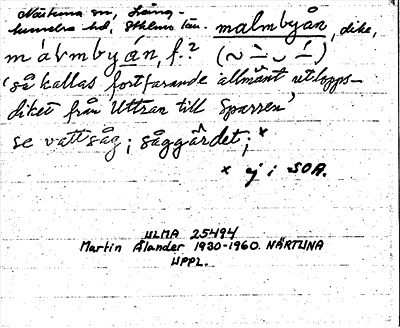 Närtuna sn, Lång-
hundra hd, Sthlms län. malmbyån, dike,
målmbyån, f.? (~ ∸ ⌣ ∸)
'så kallas fortfarande allmänt utlopps-
diket från Uttran till Sparren'
se vattsåg; såggärdet; ×
× ej i SOA.
ULMA 25494
Martin Ålander 1930-1960. NÄRTUNA
UPPL.